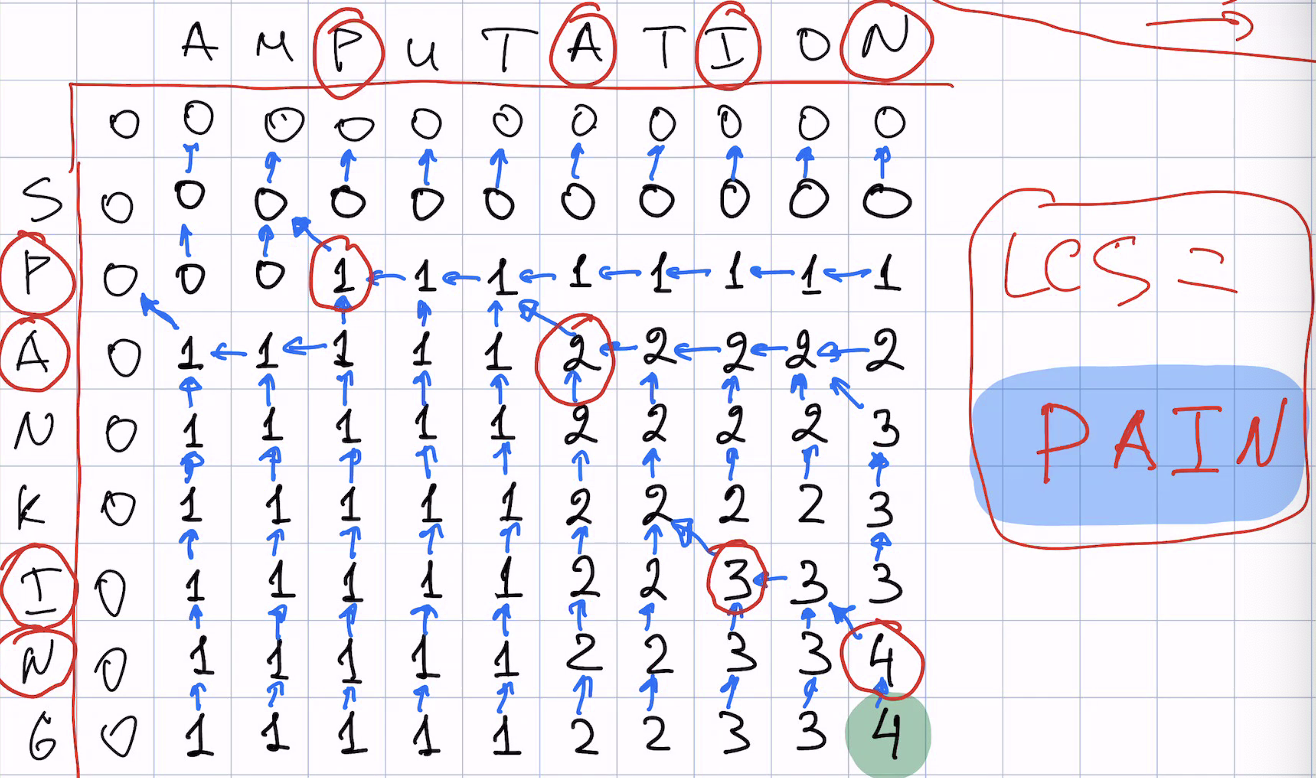 A M P U T A T I O N
0 0 0 0 0 0 0 0 0 0 0
S 0 0 0 0 0 0 0 0 0 0 0
P 0 0 0 1 1 1 1 1 1 1 1
A 0 1 1 1 1 1 2 2 2 2 2
N 0 1 1 1 1 1 2 2 2 2 3
K 0 1 1 1 1 1 2 2 2 2 3
I 0 1 1 1 1 1 2 2 3 3 3
N 0 1 1 1 1 1 2 2 3 3 4
G 0 1 1 1 1 1 2 2 3 3 4
LCS =
PAIN